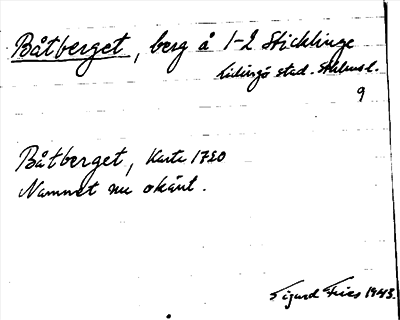 Båtberget, berg å 1-2 Sticklinge
Lidingö stad. Sthlms l.
9
Båtberget, Karta 1730
Namnet nu okänt.
Sigurd Fries 1943.